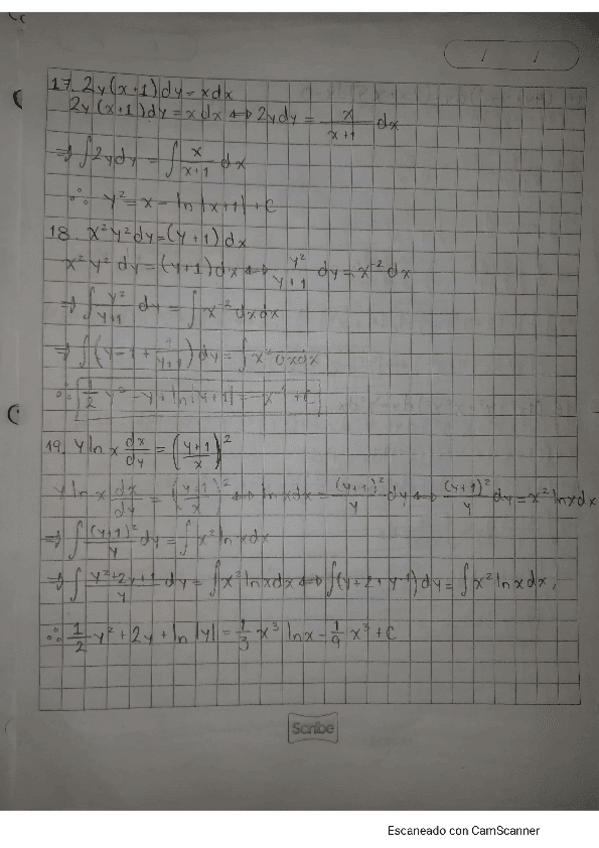 17. 2y(x+1)dy=xdx
2y(x+1)dy=xdx ⟺ 2ydy = x/(x+1) dx
⇒ ∫2ydy = ∫ x/(x+1) dx
∴ y²=x-ln|x+1|+C
18. x²y²dy=(y+1)dx
x²y²dy=(y+1)dx ⟺ y²/(y+1) dy = x⁻²dx
⇒ ∫ y²/(y+1) dy = ∫ x⁻² dxdx
⇒ ∫(y-1+1/(y+1))dy = ∫x⁻²dxdx
∴ 1/2 y²-y+ln|y+1|=-x⁻¹+C
19. y ln x dx/dy = ((y+1)/x)²
y ln x dx/dy = ((y+1)/x)² ⟺ ln x dx = (y+1)²/y dy ⟺ (y+1)²/y dy = x² ln x dx
⇒ ∫ (y+1)²/y dy = ∫ x² ln x dx
⇒ ∫ (y²+2y+1)/y dy = ∫x² ln x dx ⟺ ∫(y+2+y⁻¹)dy = ∫x² ln x dx,
∴ 1/2 y²+2y+ln|y| = 1/3 x³ ln x - 1/9 x³+C
Scribe
Escaneado con CamScanner